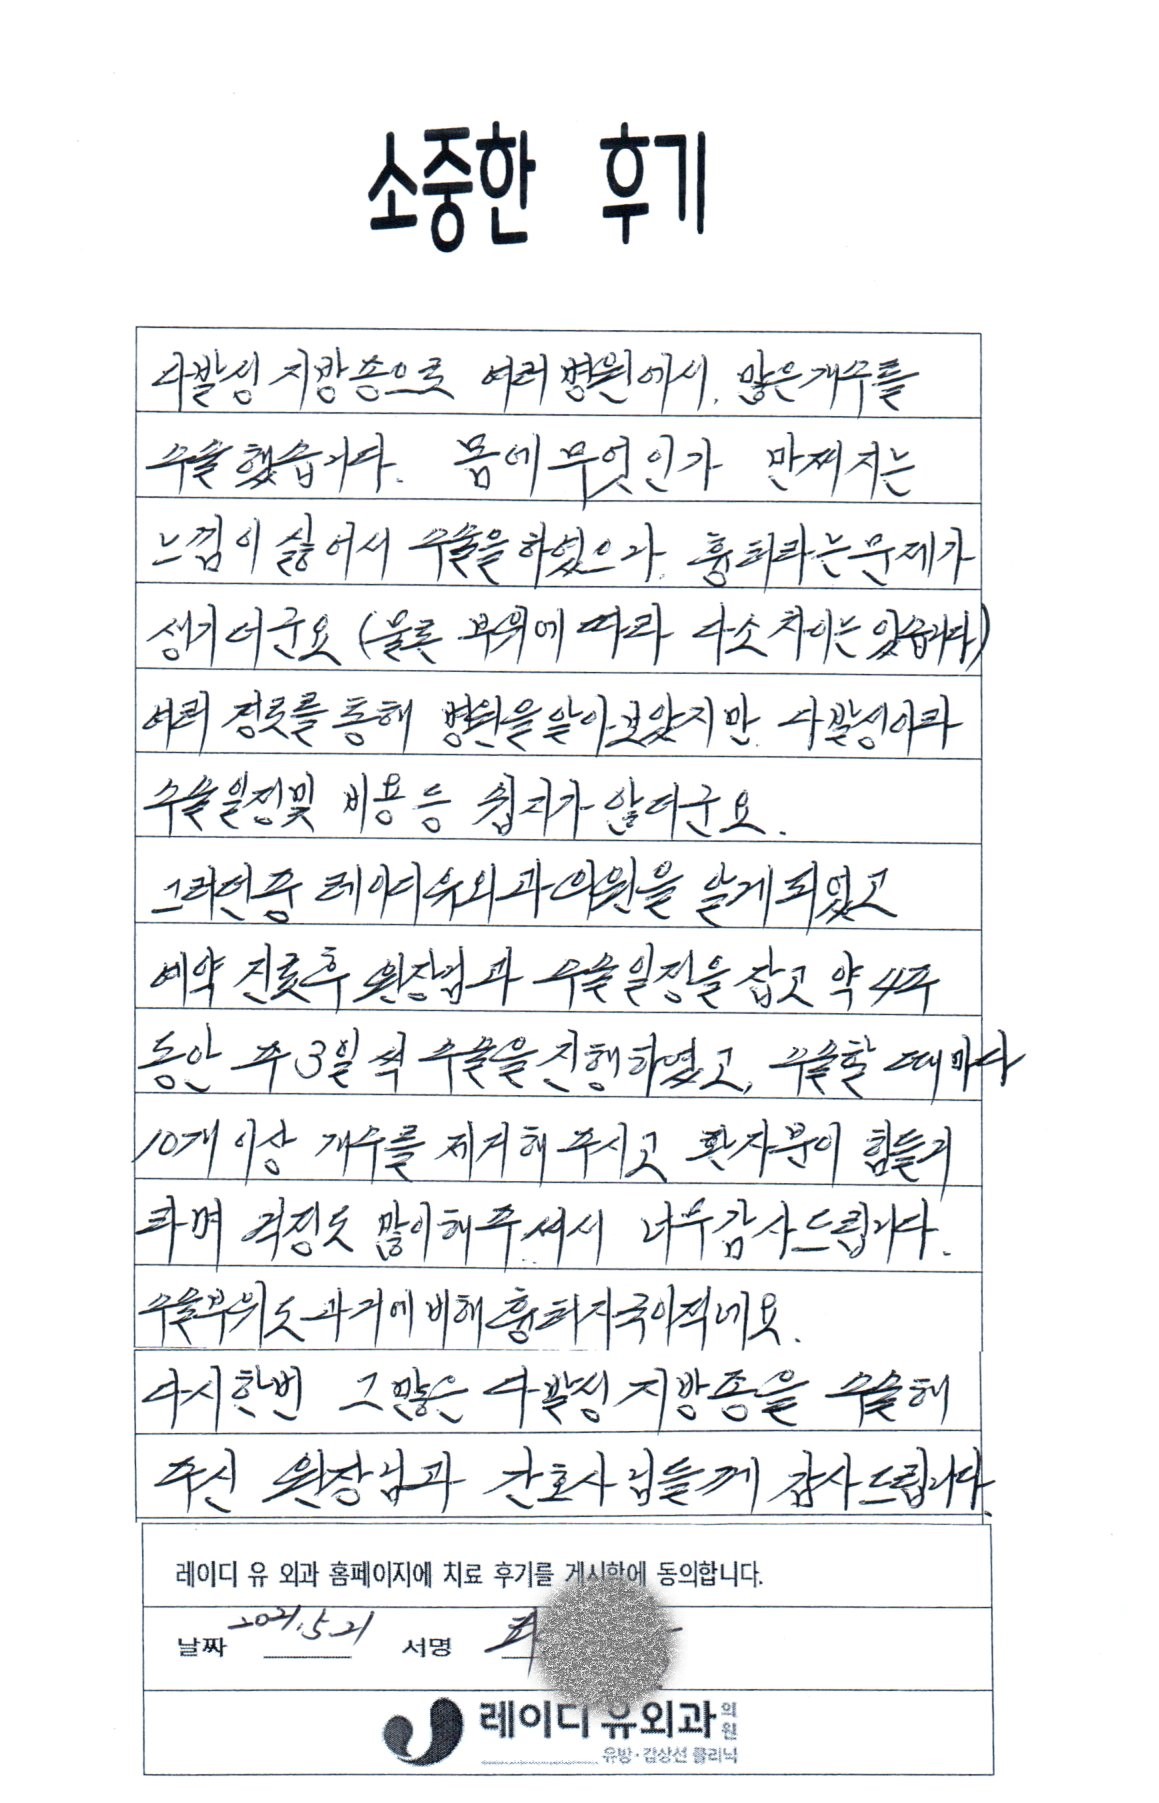 소중한 후기
다발성 지방종으로 여러병원에서, 많은개수를
수술했습니다. 몸에 무엇인가 만져지는
느낌이 싫어서 수술을 하였으나, 흉터라는 문제가
생기더군요 (물론 부위에 따라 다소 차이는 있습니다)
여러 경로를 통해 병원을 알아보았지만, 다발성이라
수술일정및 비용등 쉽지가 않더군요.
그러던중 레이디유외과의원을 알게되었고
예약 진료후 원장님과 수술일정을 잡고 약 4주
동안 주 3일씩 수술을 진행하였고, 수술할 때마다
10개 이상 개수를 제거해 주시고 환자분이 힘들거
라며 걱정도 많이해주셔서 너무감사드립니다.
수술부위도 과거에 비해 흉터자국이적네요.
다시한번 그많은 다발성 지방종을 수술해
주신 원장님과 간호사님들께 감사드립니다.
레이디 유 외과 홈페이지에 치료 후기를 게시함에 동의합니다.
날짜 2021.5.21 서명
레이디 유외과 의원
유방·갑상선 클리닉